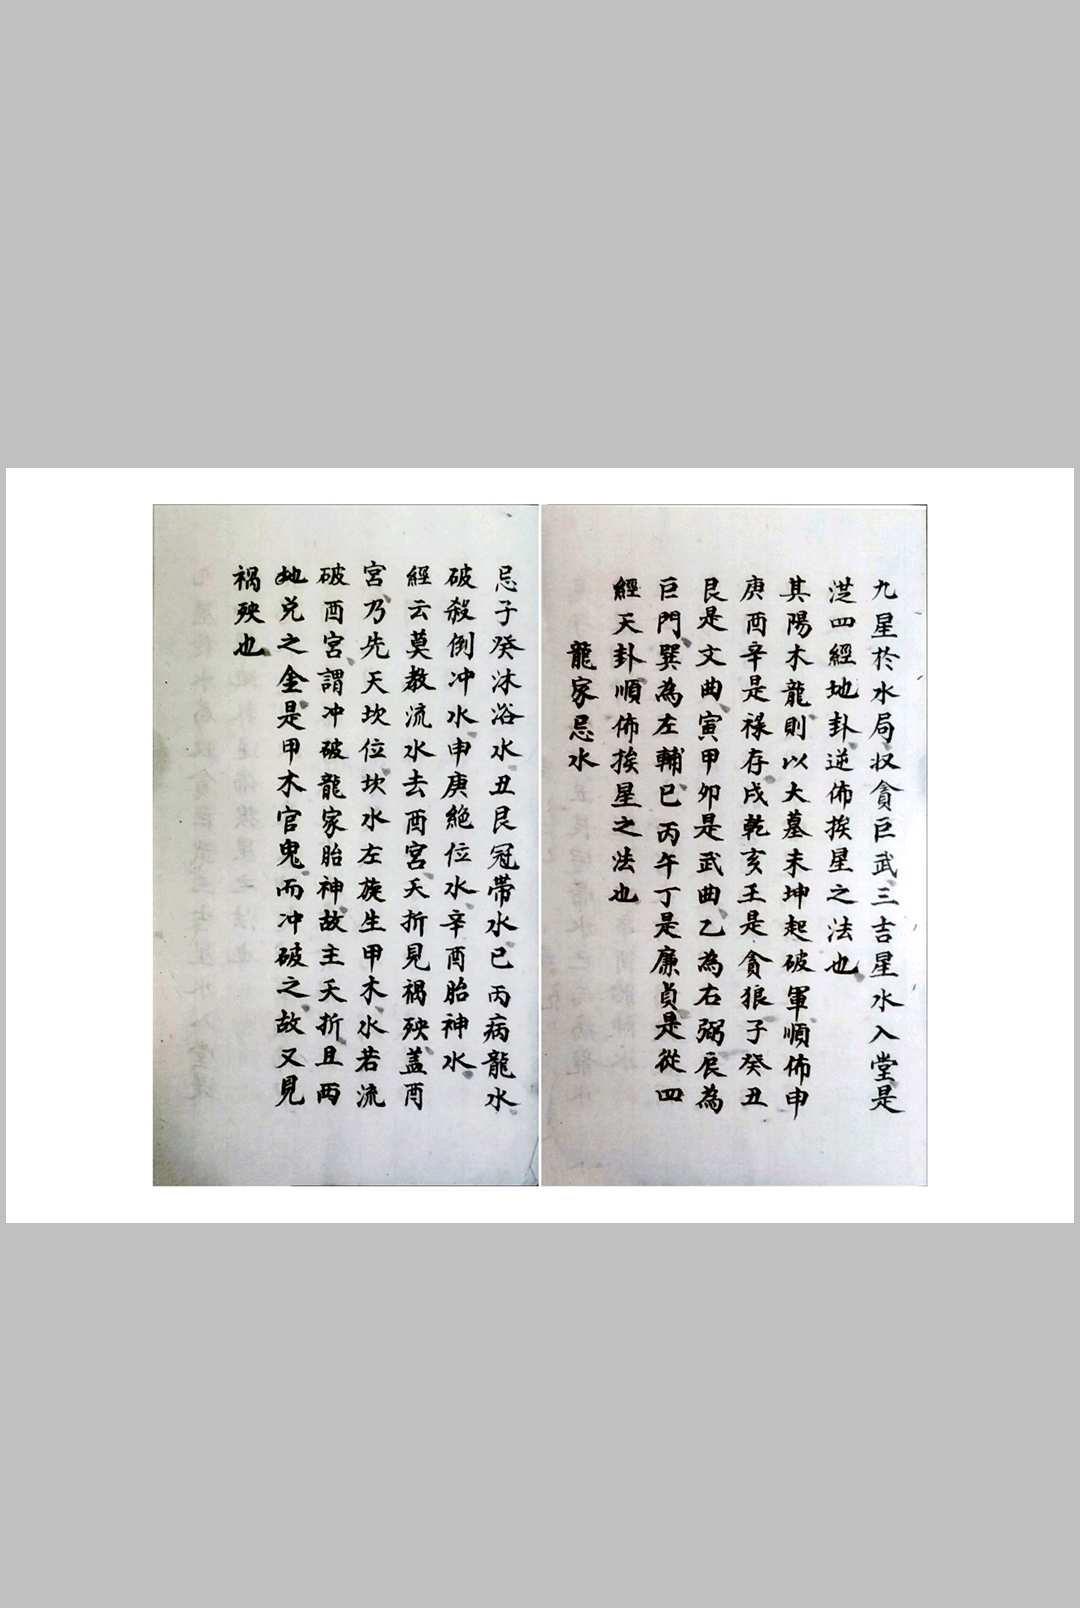 九星於水局収貪巨武三吉星水入堂是
從四經地卦逆佈挨星之法也
其陽木龍則以大墓未坤起破軍順佈申
庚酉辛是祿存戌乾亥壬是貪狼子癸丑
艮是文曲寅甲卯是武曲乙為右弼辰為
巨門巽為左輔巳丙午丁是廉貞是從四
經天卦順佈挨星之法也
龍家忌水
忌子癸沐浴水丑艮冠帶水巳丙病龍水
破殺倒冲水申庚絕位水辛酉胎神水
經云莫教流水去酉宮夭折見禍殃蓋酉
宮乃先天坎位坎水左旋生甲木水若流
破酉宮謂冲破龍家胎神故主夭折且酉
地兌之金是甲木官鬼而冲破之故又見
禍殃也